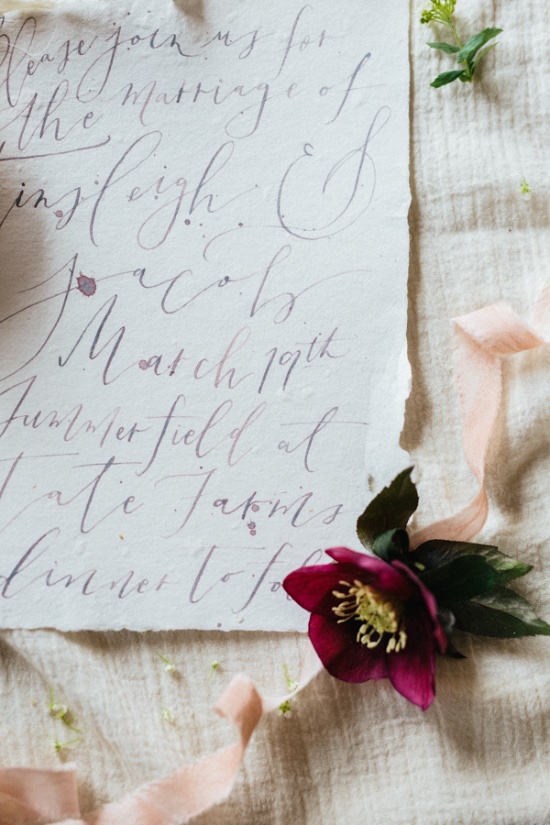 Please join us for
the marriage of
insleigh &
Jacob
March 19th
Summerfield at
Tate Farms
dinner to fo